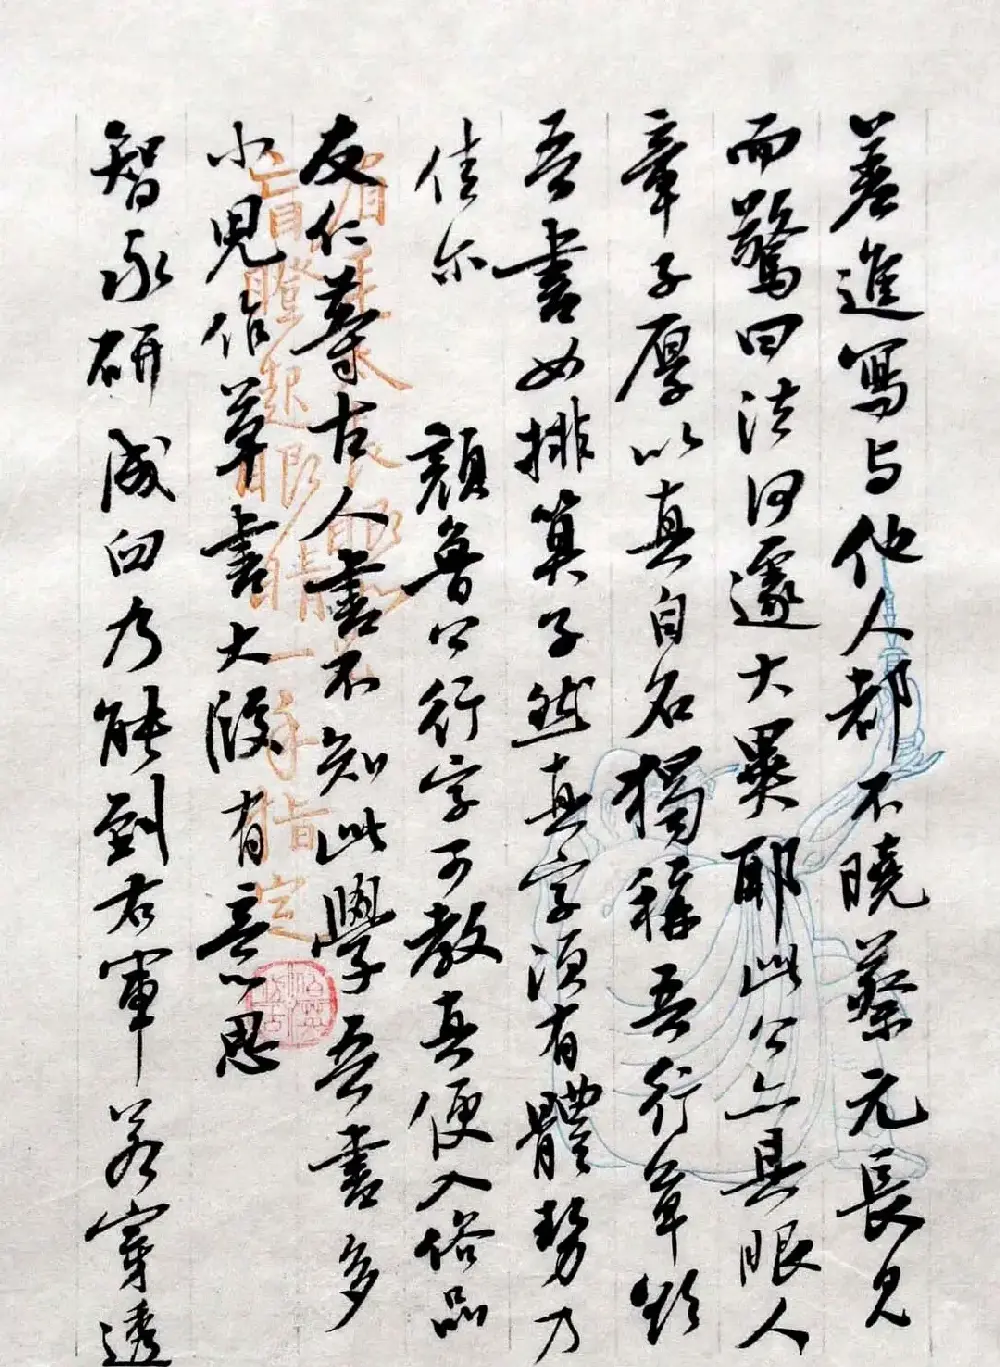 差進寫与他人都不曉蔡元長見
而驚曰法何遽大異耶此公亦具眼人
章子厚以真自名獨稱吾行草欲
吾書如排算子然真字須有體勢乃
佳尔 顏魯公行字可教真便入俗品
友仁等古人書不知此學吾書多
小児作草書大段有意思
智永研成臼乃能到右軍若穿透